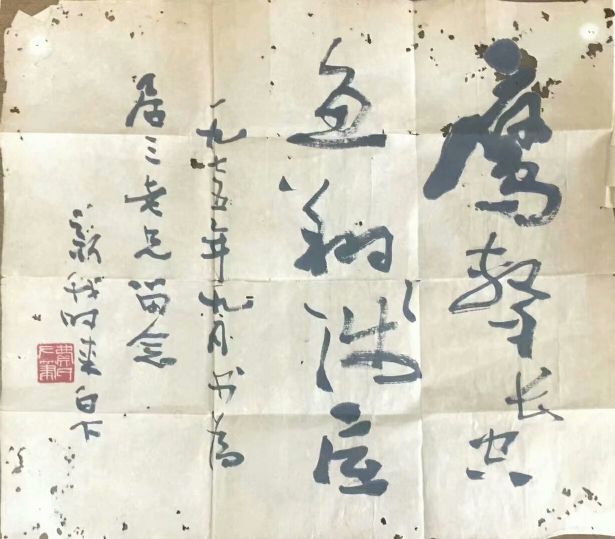 鹰击长空
鱼翔浅底
一九七五年九月书为
居三老兄留念
时梅白下